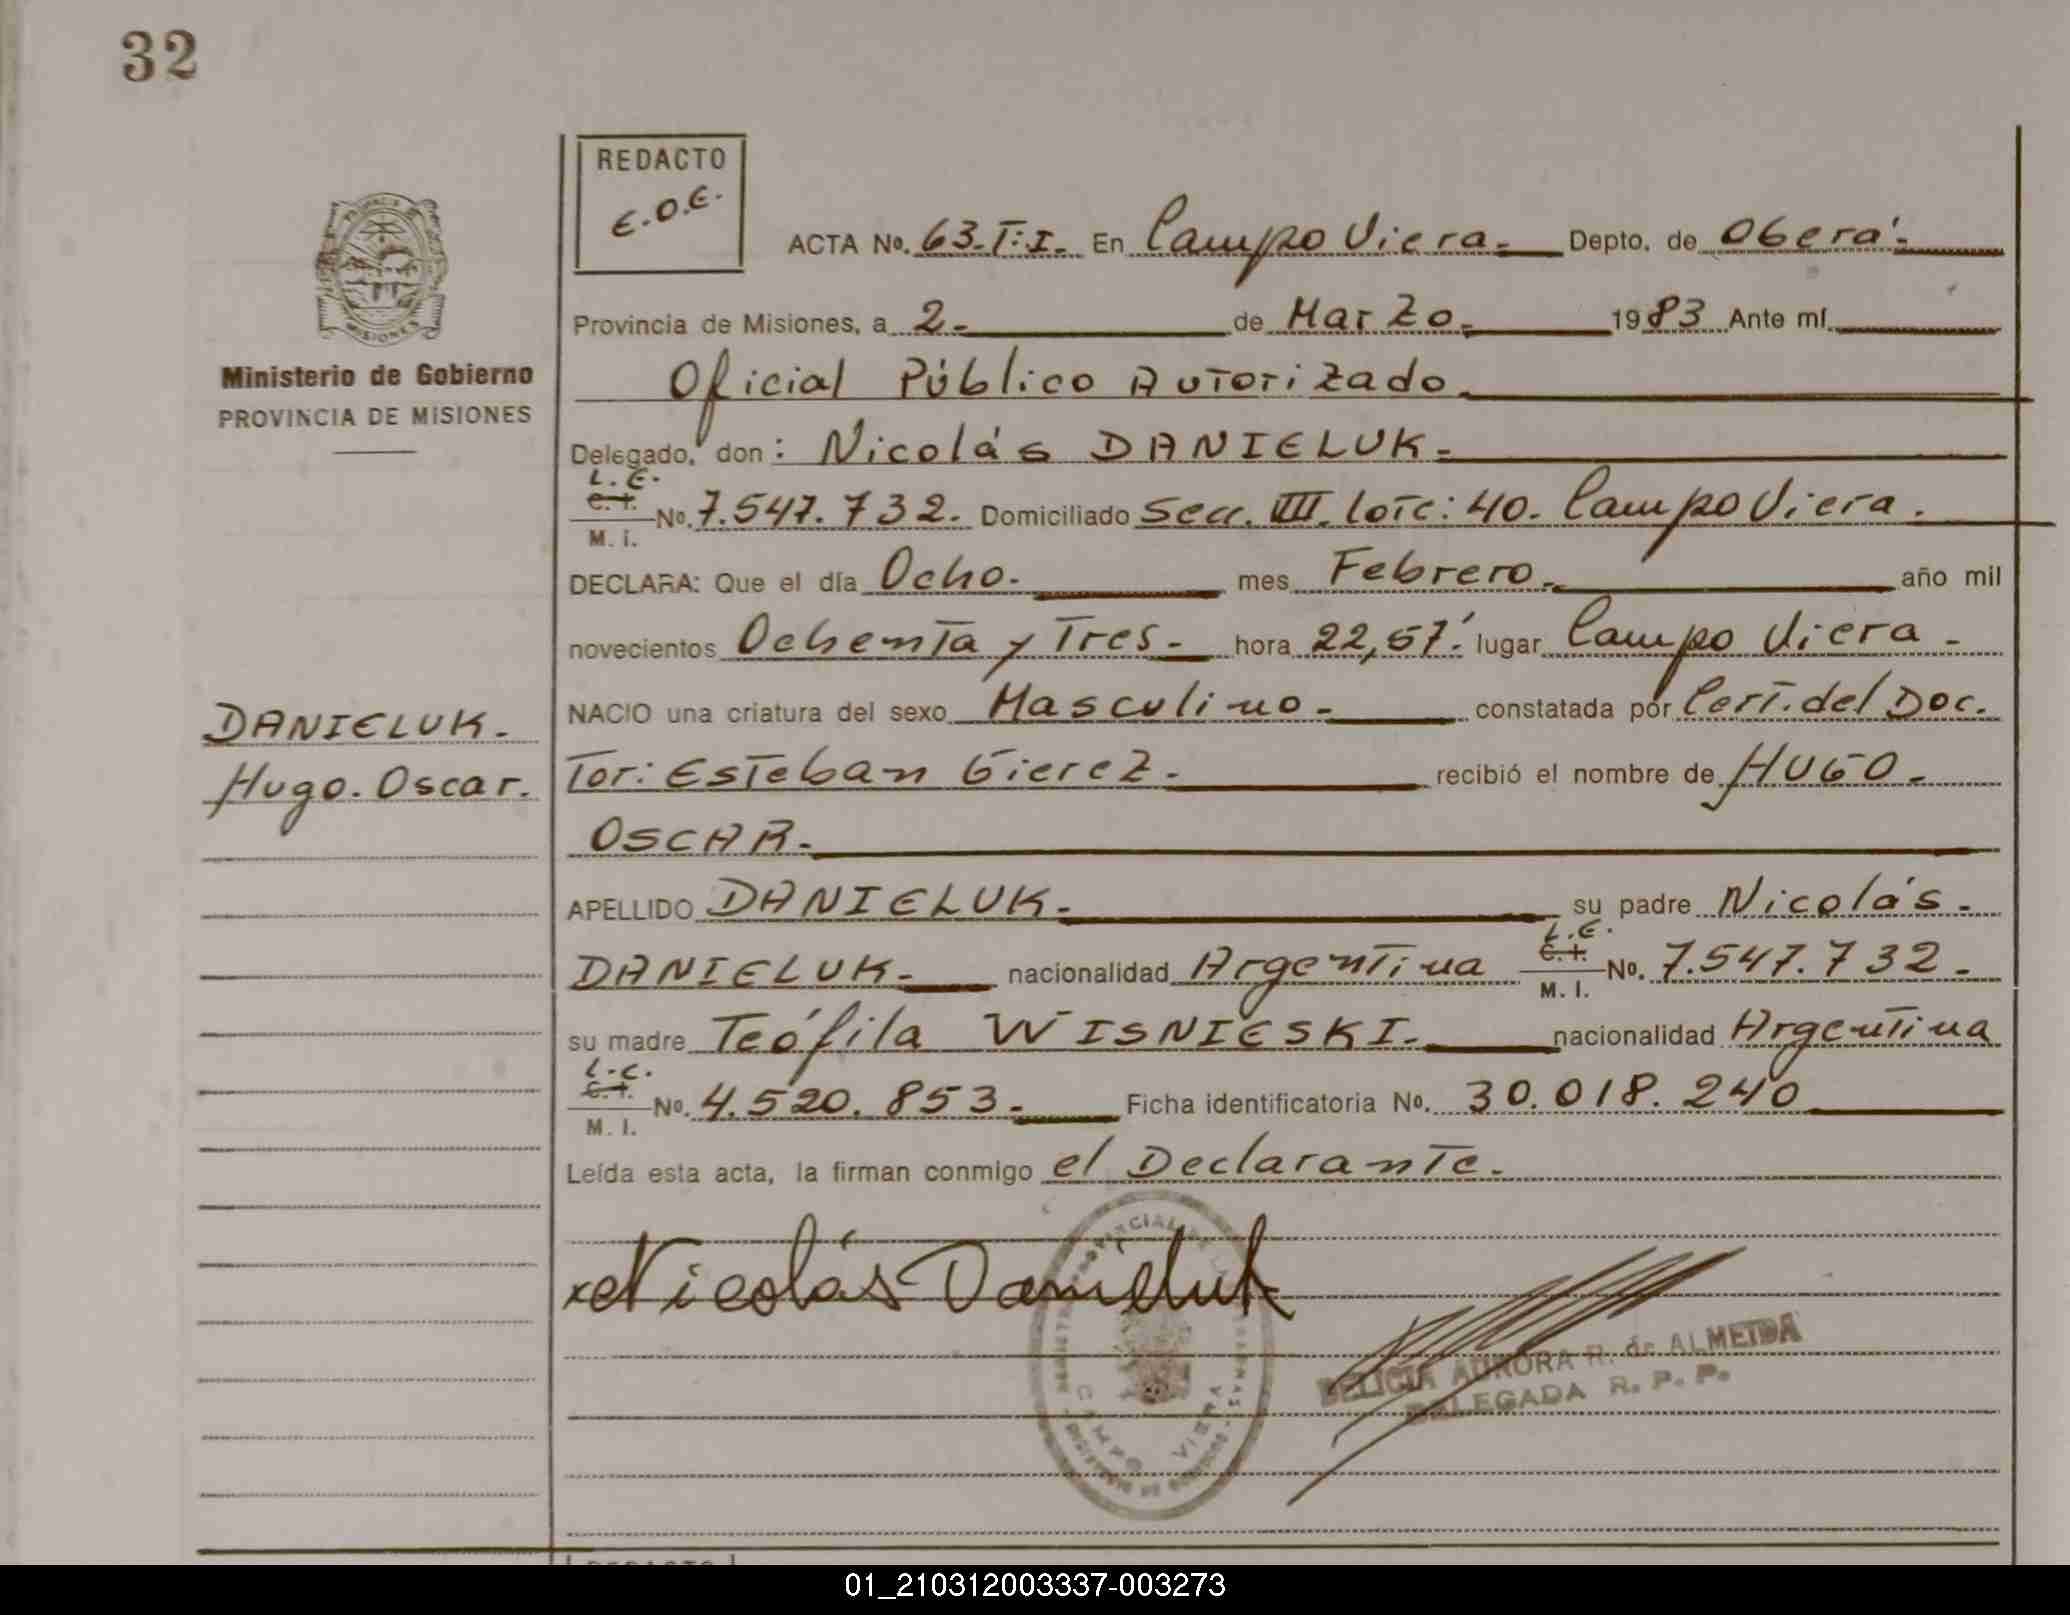 32
REDACTO
E.O.E.
ACTA No. 63.T:I. En Campo Viera. Depto. de Oberá.
Provincia de Misiones, a 2. de Marzo. 1983 Ante mí
Ministerio de Gobierno
PROVINCIA DE MISIONES
Oficial Público Autorizado.
Delegado, don: Nicolás DANIELUK.
L.E.
C.I.
M. I.
No. 7.547.732. Domiciliado Secc. III. Lote: 40. Campo Viera.
DECLARA: Que el día Ocho. mes Febrero. año mil
novecientos Ochenta y Tres. hora 22,57' lugar Campo Viera.
NACIO una criatura del sexo Masculino. constatada por Cert. del Doc.
DANIELUK.
Hugo. Oscar.
Tor: Esteban Gierez. recibió el nombre de HUGO.
OSCAR.
APELLIDO DANIELUK. su padre Nicolás.
DANIELUK. nacionalidad Argentina
L.E.
C.I.
M. I.
No. 7.547.732.
su madre Teófila WISNIESKI. nacionalidad Argentina
L.C.
C.I.
M. I.
No. 4.520.853. Ficha identificatoria No. 30.018.240
Leída esta acta, la firman conmigo el Declarante.
Nicolás Danieluk
CAMPO VIERA
DELICIA AURORA R. de ALMEIDA
DELEGADA R. P. P.
01_210312003337-003273